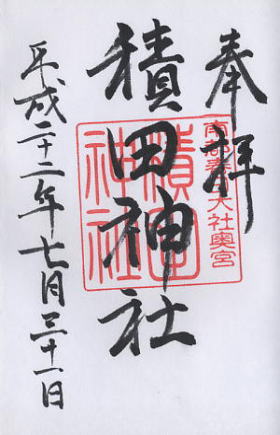 奉拝
南都春日大社奥宮
積田神社
積田神社
平成二十二年七月三十一日